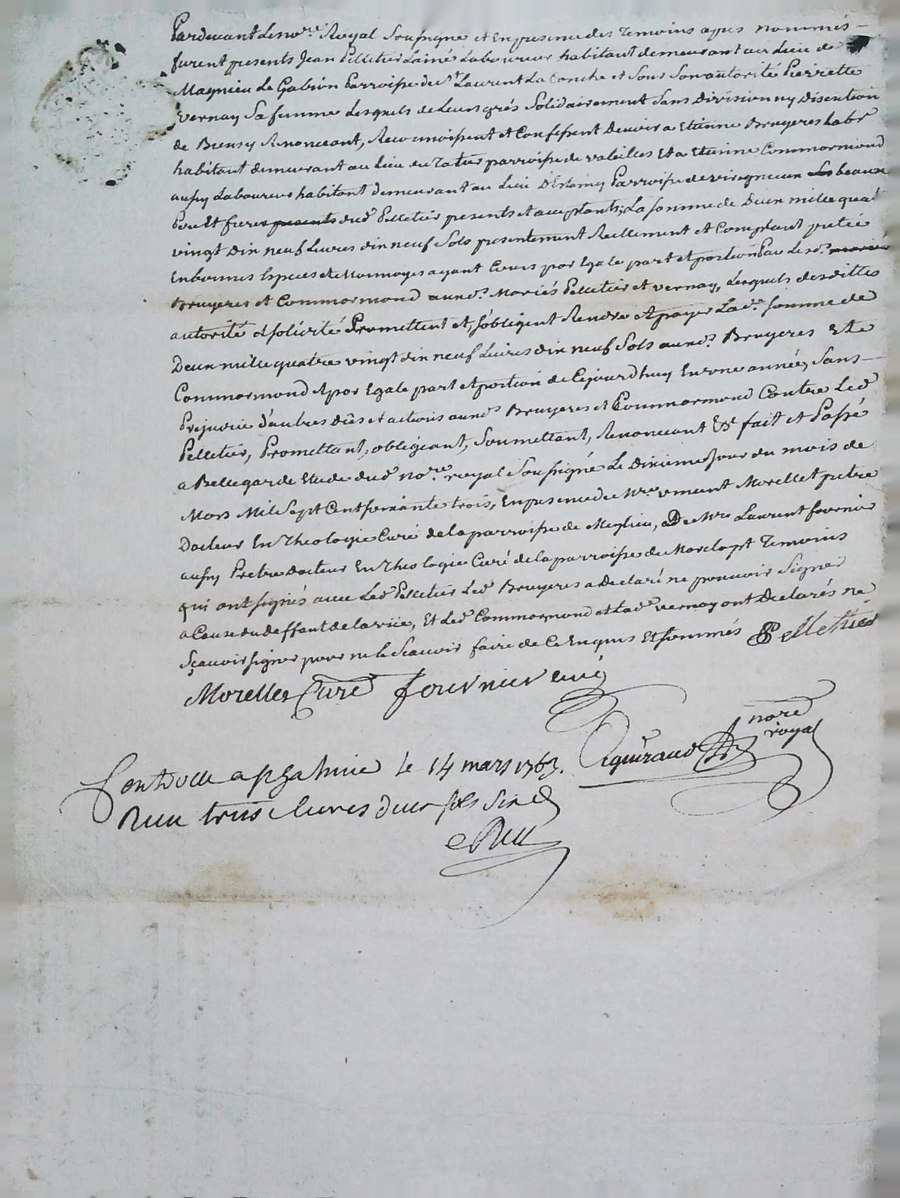 Pardevant Le nore. Royal Soussigné et En presence des Temoins apres nommés
furent presents Jean Pelletier Lainé Laboureur habitant demeurant au Lieu de
Magnieu Le Gabion Parroisse de st. Laurent La Conche et Sous Son autorité Pierrette
vernay Sa femme Lesquels de Leurs grés Solidairement Sans Division ny Discution
de Biens y Renonceant, Reconnoissent et Confessent devoir a Etienne Bruyeres Labr
habitant demeurant au Lieu du parroisse de valeilles Et a Etienne Commarmond
aussy Laboureur habitant demeurant au Lieu Parroisse de virigneux Les beaux
et freres presents dud Pelletier presents et acceptants, La somme de Deux mille quatre
vingt Dix neuf Livres dix neuf Sols presentement Reellement et Comptant
En bonnes Especes de Monnoyes ayant Cours par Egale part et portion Par Lesd.
Bruyeres et Commarmond auxd. Mariés Pelletier et vernay, Lesquels desdittes
autorité et solidité Promettent et, s'obligent Rendre et payer Lade. somme de
Deux mille quatre vingt dix neuf Livres dix neuf Sols auxd. Bruyeres Et
Commarmond et par Egale part et portion de Cejourdhuy En une année, Sans
Prejudice d'autres dûes et actions auxd. Bruyeres et Commarmond Contre Led
Pelletier, Promettant, obligeant, Soumettant, Renonceant &a fait et Passé
a Bellegarde Etude dud nore. royal Soussigné Le Dixieme Jour du mois de
Mars Mil Sept Cent soixante trois, En presence de Mre vincent Morellet pretre
Docteur En Theologie Curé de la parroisse de Meylieu, Et De Mre Laurent fournier
aussy Pretre Docteur En Theologie Curé de la parroisse de Marclopt Temoins
qui ont signés avec Led Pelletier Led Bruyeres a Declaré ne pouvoir Signer
a Cause du deffaut de la vüe, Et Led Commarmond et Lade vernay ont Declarés ne
sçavoir signer pour ne le Scavoir faire de Ce Enquis Et sommés Pelletier
Morellet Curé fournier curé
nore royal
Controllé a le 14 mars 1763.
Reçu trois Livres